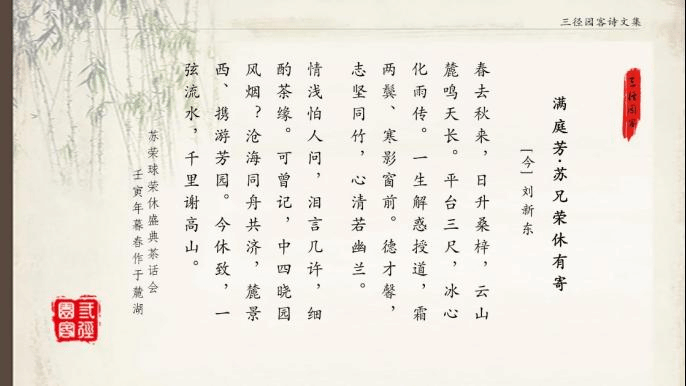 三径园客诗文集
三径园客
满庭芳·苏兄荣休有寄
[今]刘新东
春去秋来，日升桑梓，云山
麓鸣天长。平台三尺，冰心
化雨传。一生解惑授道，霜
两鬓、寒影窗前。德才馨，
志坚同竹，心清若幽兰。
情浅怕人问，泪言几许，细
酌茶缘。可曾记，中四晓园
风烟？沧海同舟共济，麓景
西、携游芳园。今休致，一
弦流水，千里谢高山。
苏荣球荣休盛典茶话会
壬寅年暮春作于麓湖
三径园客